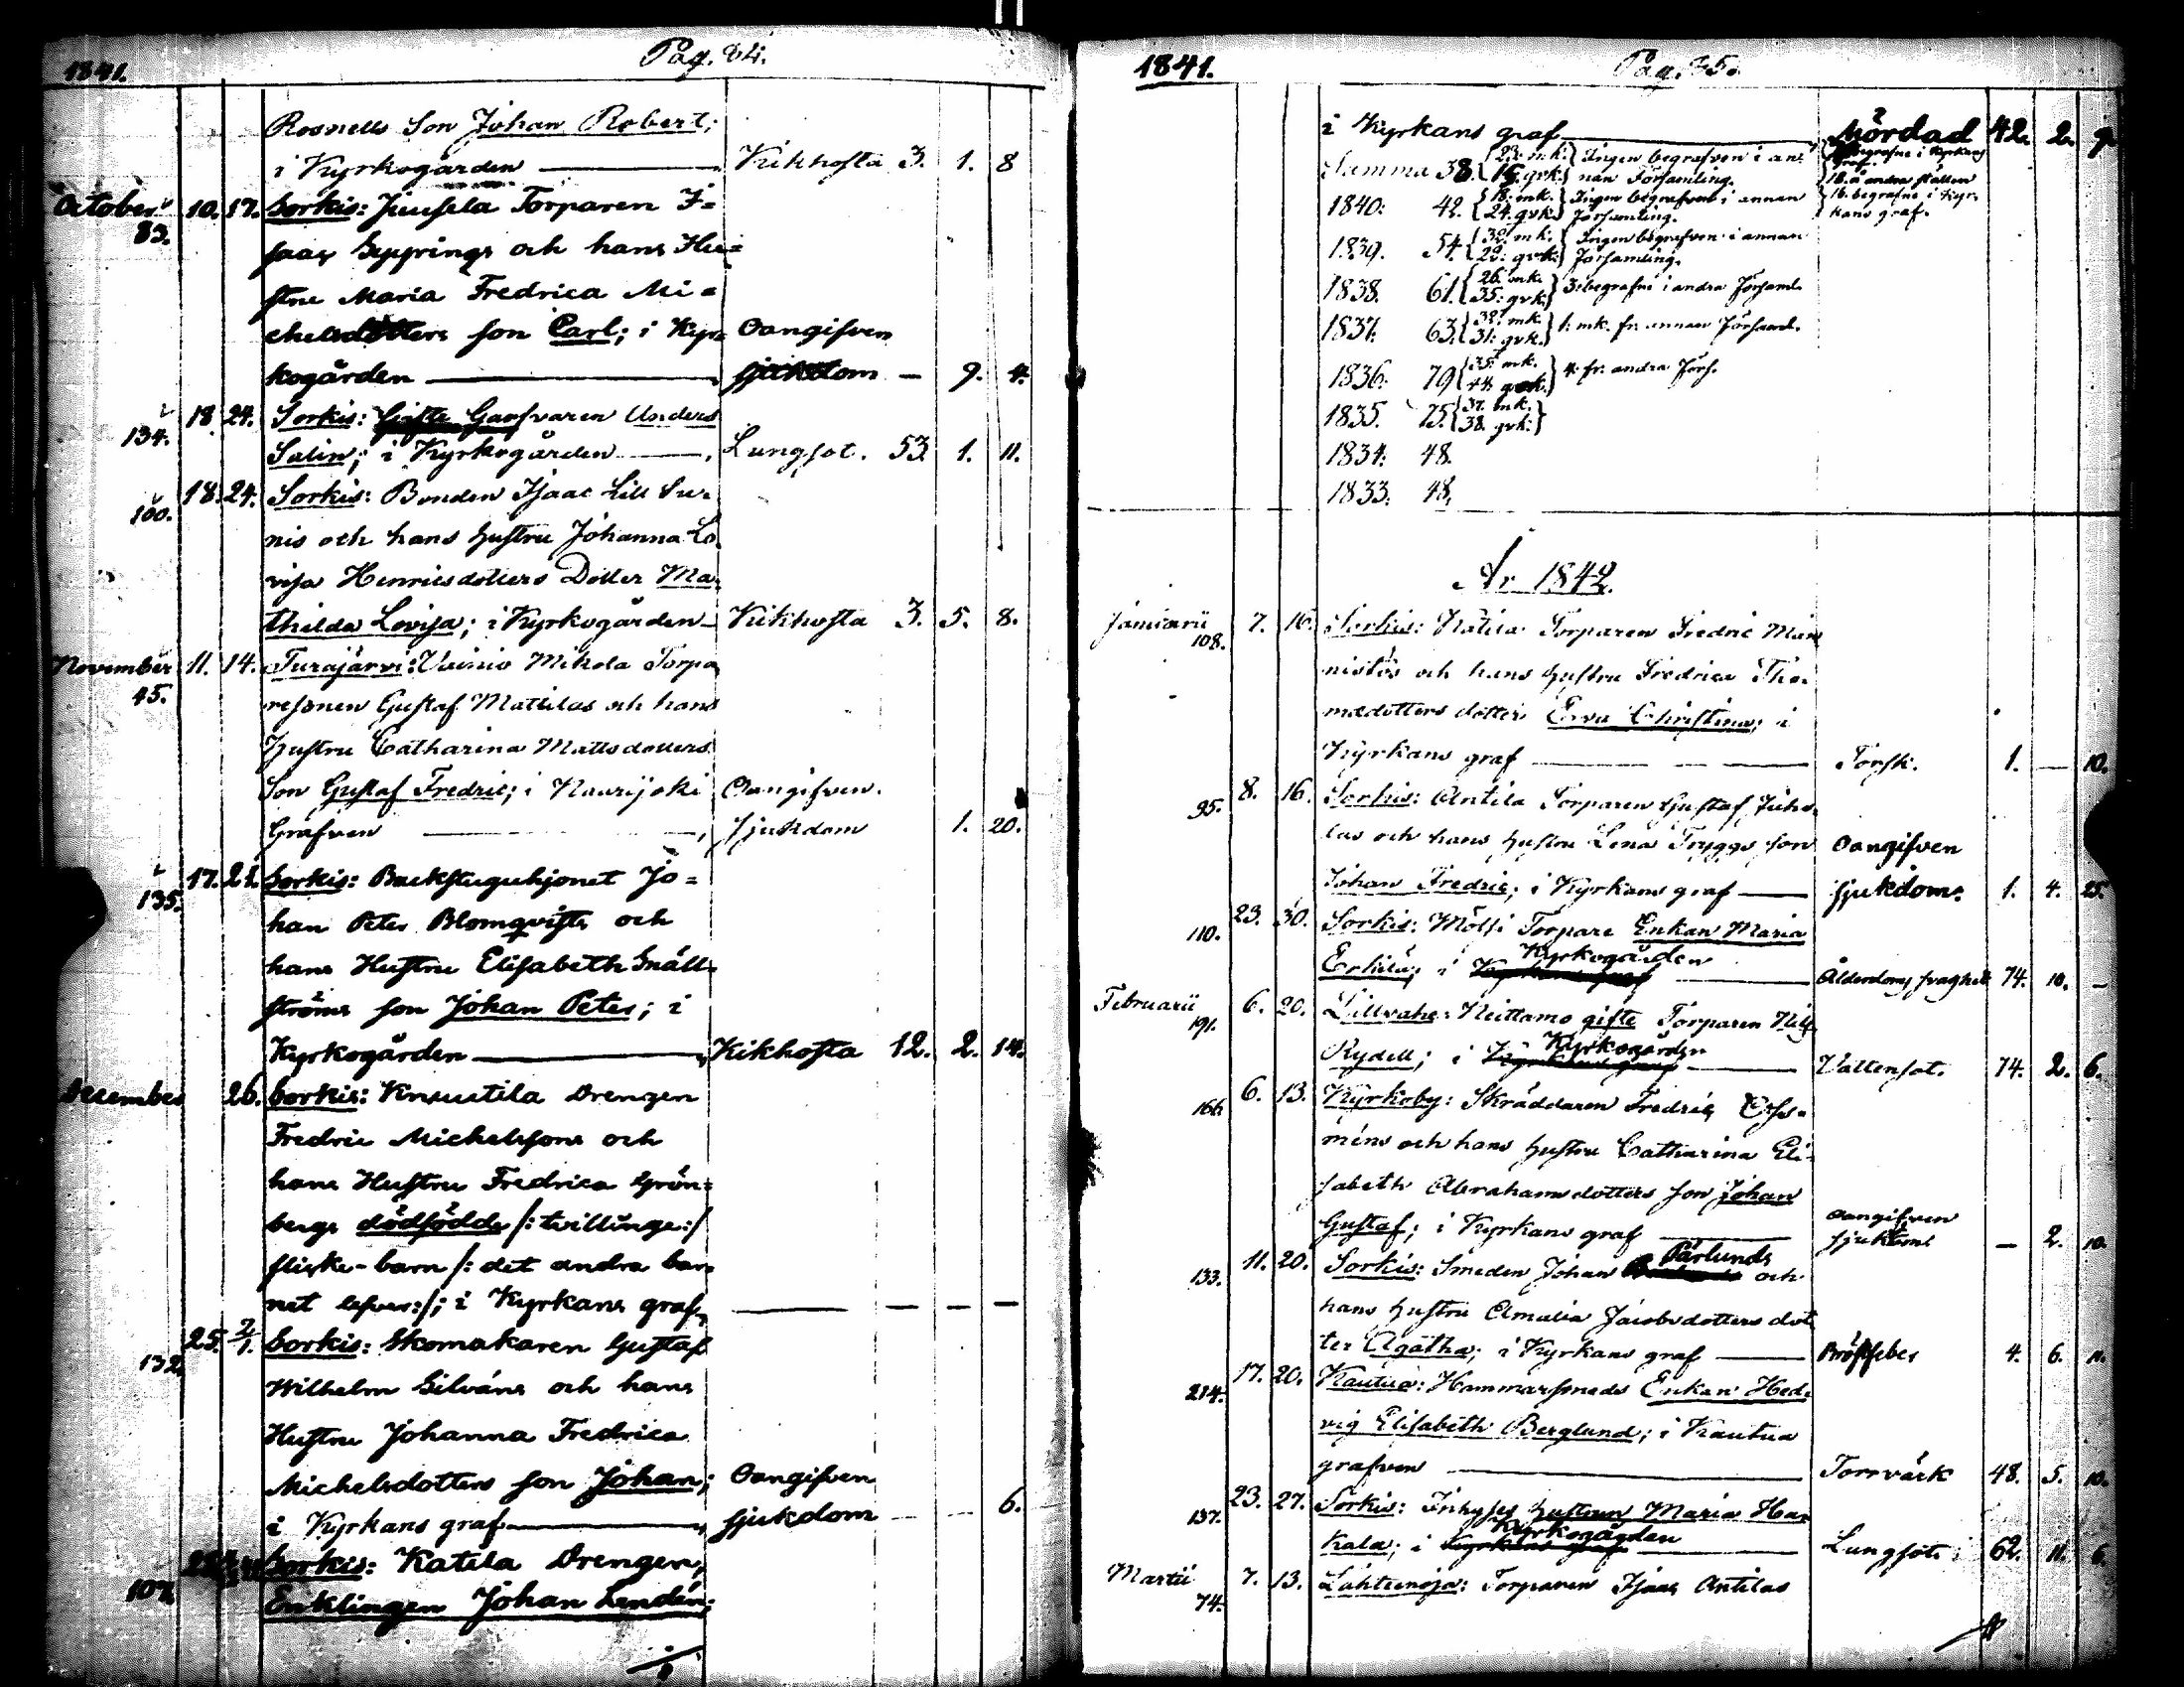 1841.
Pag. 84.
Rosnells Son Johan Robert;
i Kyrkogården Kikhosta 3. 1. 8
October 10. 17. Sorkis: Juusela Torparen I=
83. saac Sepprings och hans Hu=
stru Maria Fredrica Mi=
chelsdotters son Carl; i Kyr= Oangifven
kogården sjukdom — 9. 4.
18 24. Sorkis: Gifte Garfvaren Anders
134. Salin; i Kyrkogården Lungsot. 53. 1. 11.
18. 24. Sorkis: Bonden Isaac Lill
100.
nis och hans hustru Johanna Lo
visa Henricsdotters Dotter Ma
thilda Lovisa; i Kyrkogården Kikhosta 3. 5. 8.
November 11. 14. Turajärvi: Vainio Mikola Torpa
45. resonen Gustaf Mattilas och hans
hustru Catharina Mattsdotters
Son Gustaf Fredric; i Oangifven.
Grafven sjukdom 1. 20.
17. 21. Sorkis: Backstuguhjonet Jo=
135. han Peter Blomqvists och
hans Hustru Elisabeth Snäll=
ströms son Johan Peter; i
Kyrkogården Kikhosta 12. 2. 14.
December 26. Sorkis: Knuutila Drengen
Fredric Michelssons och
hans Hustru Fredrica Grön=
bergs dödfödde /: tvillinge:/
flicke-barn /: det andra bar=
net lefver:/; i Kyrkans graf, — — —
25. 2/1. Sorkis: Skomakaren Gustaf
132. Wilhelm Silvéns och hans
Hustru Johanna Fredrica
Michelsdotters son Johan; Oangifven
i Kyrkans graf sjukdom 6.
Sorkis: Katila Drengen,
107. Enklingen Johan Lendén;
i
1841.
Pag. 85.
i Kyrkans graf Mördad 42. 2. 9.
Summa 38. { 23. mk. } Ingen begrafven i an=
gvk. } nan Församling.
begrafne i Kyrkans graf.
18. å andra ställen
16. begrafne i Kyr=
kans graf.
1840: 42. { 18. mk. 24. gvk. } Ingen begrafven i annan Församling.
1839. 54. { mk. gvk. } Ingen begrafven i annan Församling.
1838. 61. { 26. mk. 35. gvk. } 3: begrafne i andra Församl.
1837. 63. { 32. mk. 31. gvk. } 1. mk. fr. annan Församl.
1836: 79 { 35. mk. 44. gvk. } 4. fr. andra Förs.
1835. 75. { 37. mk. 38. gvk. }
1834: 48.
1833. 48.
År 1842.
Januarii 7. 16. Sorkis: Katila Torparen Fredric Män
108. nistös och hans hustru Fredrica Tho=
mædotters dotter Eva Christina; i
Kyrkans graf Torsk. 1. — 10.
8. 16. Sorkis: Antila Torparen Gustaf Juho=
95. las och hans hustru Lena Tryggs son Oangifven
Johan Fredric; i Kyrkans graf sjukdom. 1. 4. 25.
23. 30. Sorkis: Mölsi Torpare Enkan Maria
110. Erkilä; i Kyrkogården Ålderdoms svaghet 74. 10. —
Februarii 6. 20. Lillvahe: Neittamo gifte Torparen Nils
191. Rydell; i Kyrkogården Vattensot. 74. 2. 6.
6. 13. Kyrkoby: Skräddaren Fredric
166.
méns och hans hustru Catharina Eli=
sabeth Abrahamsdotters son Johan
Gustaf; i Kyrkans graf Oangifven sjukdom — 2. 10.
11. 20. Sorkis: Smeden Johan Pärlunds och
133. hans hustru Amalia Jacobsdotters dot
ter Agatha; i Kyrkans graf Bröstfeber 4. 6. 11.
17. 20. Kautua: Hammarsmeds Enkan Hed=
214. vig Elisabeth Berglund; i Kautua
grafven Torrvärk 48. 5. 10.
23. 27. Sorkis: Inhyses hustrun Maria Har
137. kala; i Kyrkogården Lungsot. 62. 11. 6.
Martii 7. 13. Lähteenoja: Torparen Isaac Antilas
74.